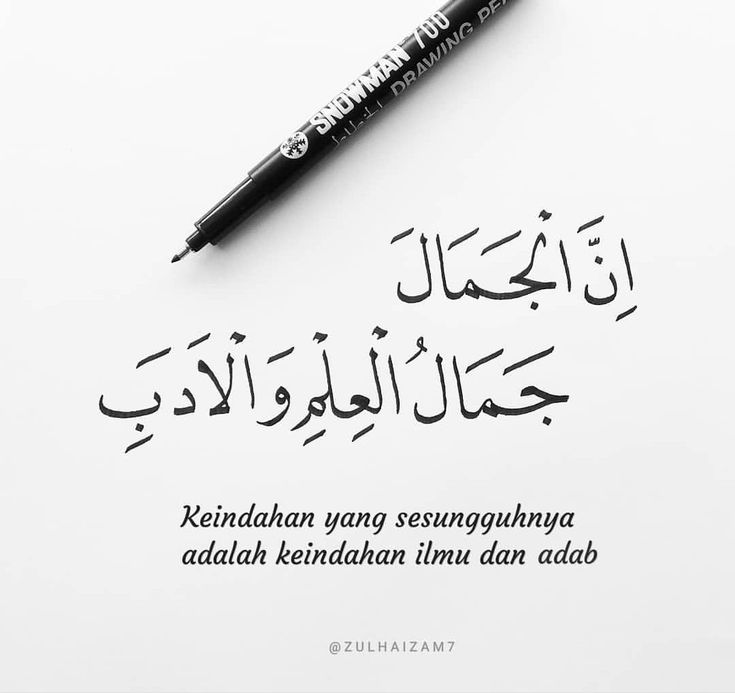 SNOWMAN 700
DRAWING PE
اِنَّ الْجَمَالَ
جَمَالُ الْعِلْمِ وَالْاَدَبِ
Keindahan yang sesungguhnya
adalah keindahan ilmu dan adab
@ZULHAIZAM7